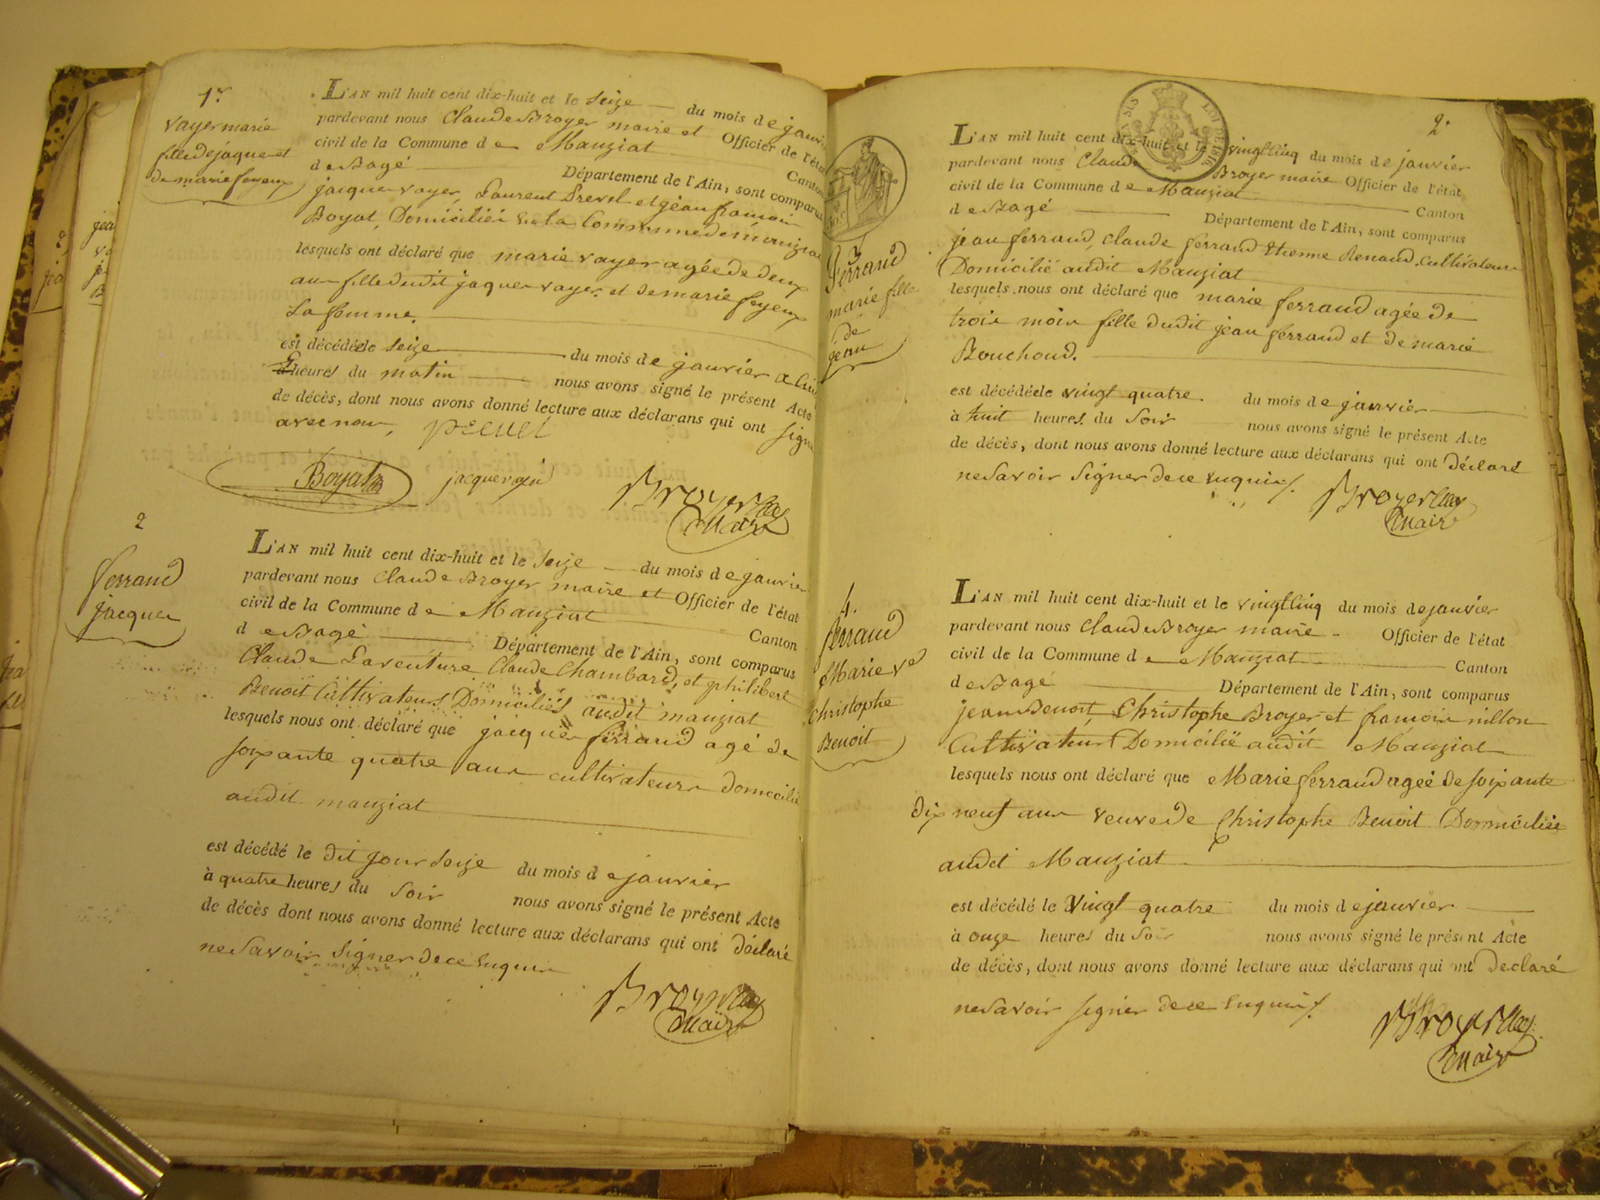 1.er
Vayer marie
fille de jaque et
de marie feyeux
L'AN mil huit cent dix-huit et le Seize du mois de janvier
pardevant nous Claude Broyer maire et Officier de l'état
civil de la Commune de Manziat Canton
de Bagé Département de l'Ain, sont comparus
jacque vayer, Laurent Prevel et jean francois
Boyat, Domiciliés en la Commune de manziat
lesquels ont déclaré que marie vayer agée de deux
ans fille dudit jaque vayer et de marie feyeux
La femme.
est décédée le seize du mois de janvier a
heures du matin nous avons signé le présent Acte
de décès, dont nous avons donné lecture aux déclarans qui ont signé
avec nous, prevel
Boyat jacque vayé Broyer
Maire
2
ferrand
jacque
L'AN mil huit cent dix-huit et le Seize du mois de janvier
pardevant nous Claude Broyer maire et Officier de l'état
civil de la Commune de Manziat Canton
de Bagé Département de l'Ain, sont comparus
Claude Laventure Claude Chambard, et philibert
Benoit Cultivateurs Domiciliés audit manziat
lesquels nous ont déclaré que jacque ferrand agé de
soixante quatre ans cultivateur domicilié
audit manziat
est décédé le dit jour seize du mois de janvier
à quatre heures du Soir nous avons signé le présent Acte
de décès dont nous avons donné lecture aux déclarans qui ont déclaré
ne Savoir Signer de ce enquis
Broyer
Maire
2.
3
ferrand
marie fille
de
jean
L'AN mil huit cent dix-huit et le vingtcinq du mois de janvier
pardevant nous Claude Broyer maire Officier de l'état
civil de la Commune de Manziat Canton
de Bagé Département de l'Ain, sont comparus
jean ferrand, Claude ferrand Etienne Renaud. Cultivateurs
Domicilié audit Manziat
lesquels nous ont déclaré que marie ferrand agée de
trois mois fille dudit jean ferrand et de marie
Bouchoud.
est décédée le vingt quatre du mois de janvier
à huit heures du Soir nous avons signé le présent Acte
de décès, dont nous avons donné lecture aux déclarans qui ont déclaré
ne Savoir Signer de ce enquis.
Broyer
Maire
4.
ferrand
Marie ve
christophe
Benoit
L'AN mil huit cent dix-huit et le vingtcinq du mois de janvier
pardevant nous Claude Broyer maire Officier de l'état
civil de la Commune de Manziat Canton
de Bagé Département de l'Ain, sont comparus
jean Benoit, Christophe Broyer et francois nillon
Cultivateurs Domicilié audit Manziat
lesquels nous ont déclaré que Marie ferrand ageé de soixante
dix neuf ans veuve de Christophe Benoit Domiciliée
audit Manziat
est décédé le vingt quatre du mois de janvier
à onze heures du Soir nous avons signé le présent Acte
de décès, dont nous avons donné lecture aux déclarans qui ont declaré
ne Savoir signer de ce enquis.
Broyer
Maire